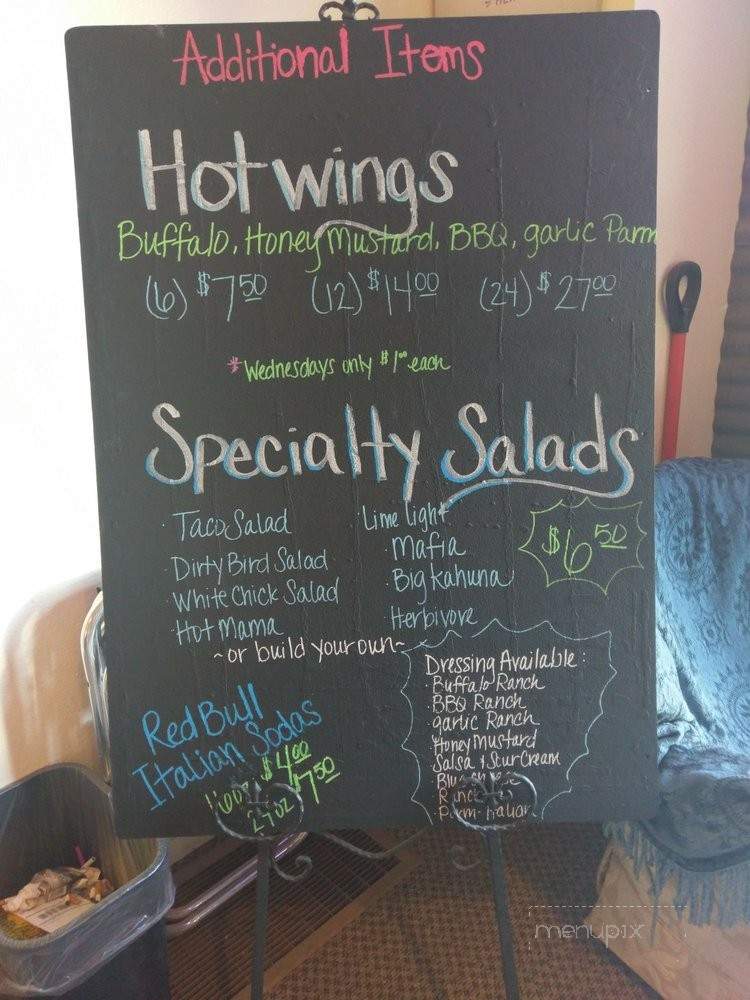 Additional Items
Hot wings
Buffalo, Honey Mustard, BBQ, garlic Parm
(6) $7.50 (12) $14.00 (24) $27.00
*Wednesdays only $1.00 each
Specialty Salads
· Taco Salad
· Dirty Bird Salad
· White Chick Salad
· Hot Mama
· Lime light
· Mafia
· Big kahuna
· Herbivore
$6.50
~or build your own~
Dressing Available:
· Buffalo Ranch
· BBQ Ranch
· garlic Ranch
· Honey Mustard
· Salsa & Sour Cream
Ranch
Red Bull
Italian Sodas
16oz $4.00
24oz $7.50
menupix